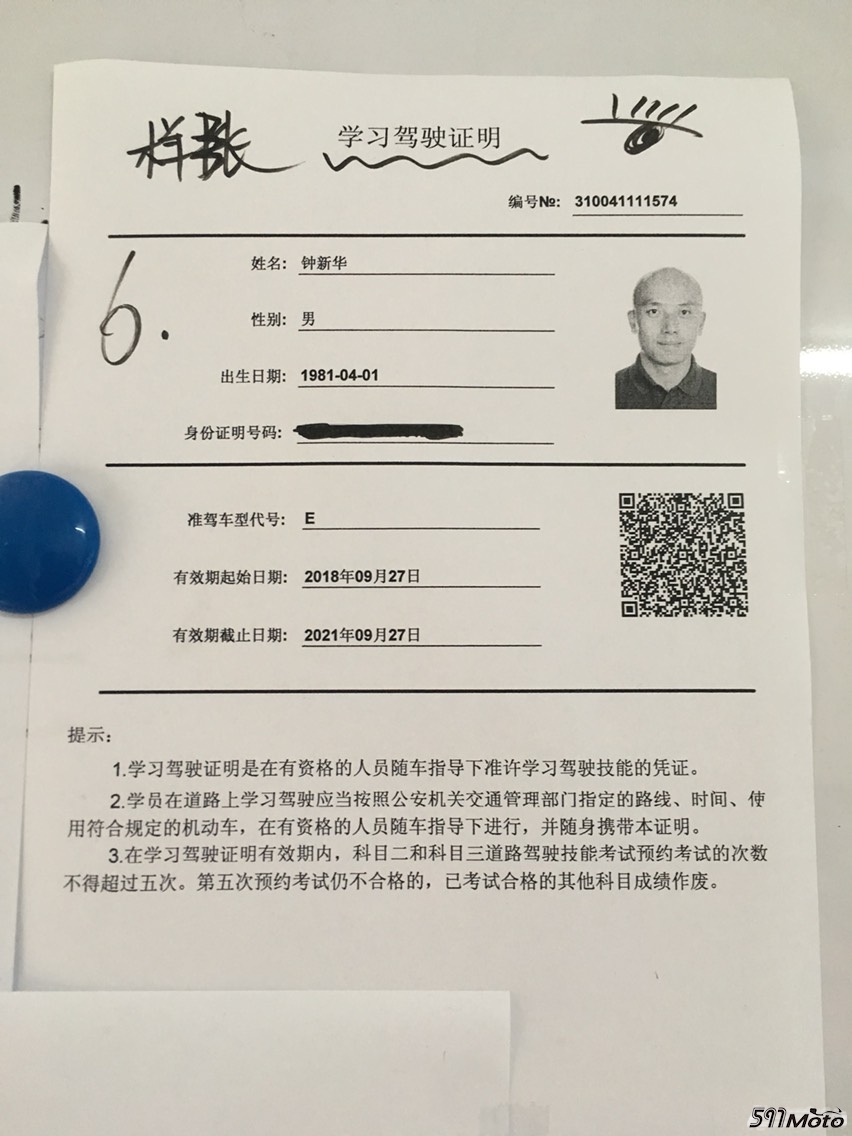 样张
学习驾驶证明
编号№: 310041111574
6.
姓名: 钟新华
性别: 男
出生日期: 1981-04-01
身份证明号码:
准驾车型代号: E
有效期起始日期: 2018年09月27日
有效期截止日期: 2021年09月27日
提示:
1.学习驾驶证明是在有资格的人员随车指导下准许学习驾驶技能的凭证。
2.学员在道路上学习驾驶应当按照公安机关交通管理部门指定的路线、时间、使
用符合规定的机动车，在有资格的人员随车指导下进行，并随身携带本证明。
3.在学习驾驶证明有效期内，科目二和科目三道路驾驶技能考试预约考试的次数
不得超过五次。第五次预约考试仍不合格的，已考试合格的其他科目成绩作废。
591Moto